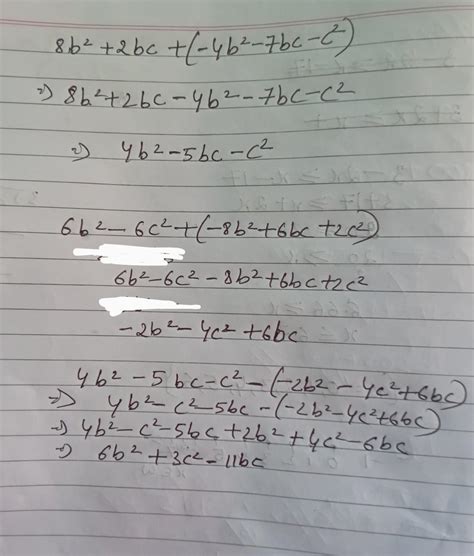 8b² + 2bc + (-4b² - 7bc - c²)
⇒ 8b² + 2bc - 4b² - 7bc - c²
⇒ 4b² - 5bc - c²
6b² - 6c² + (-8b² + 6bc + 2c²)
6b² - 6c² - 8b² + 6bc + 2c²
-2b² - 4c² + 6bc
4b² - 5bc - c² - (-2b² - 4c² + 6bc)
⇒ 4b² - c² - 5bc - (-2b² - 4c² + 6bc)
⇒ 4b² - c² - 5bc + 2b² + 4c² - 6bc
⇒ 6b² + 3c² - 11bc